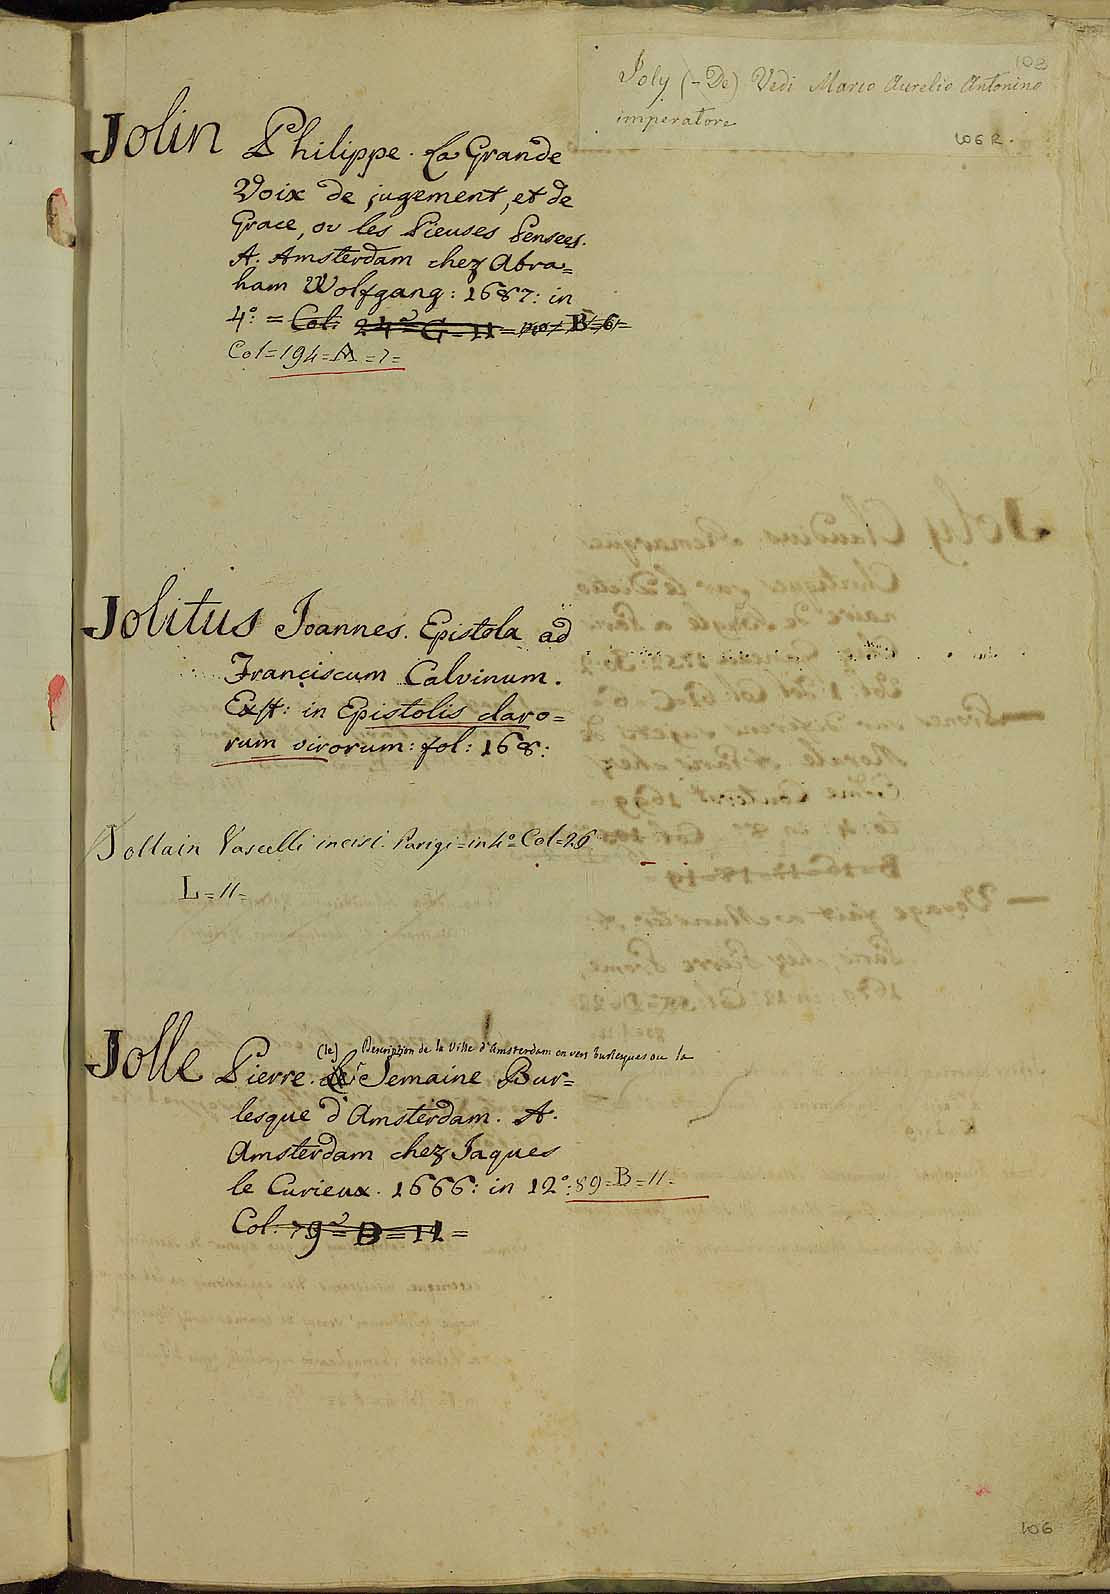 108
Joly (-De) Vedi Marco Aurelio Antonino
imperatore
106 R.
Jolin Philippe. La Grande
Voix de jugement, et de
Grace, ou les Pieuses Pensees.
A. Amsterdam chez Abra=
ham Wolfgang: 1687: in
4º: = Col: 24 G = 11 = B = 6 =
Col = 194 = A = 7 =
Jolitus Joannes. Epistola ad
Franciscum Calvinum.
Exst: in Epistolis claro=
rum virorum: fol: 168:
Jollain Vascelli incisi. Parigi = in 4º Col = 26
L = 11 =
(le) Description de la Ville d'Amsterdam en vers burlesques ou la
Jolle Pierre. Semaine Bur=
lesque d'Amsterdam. A.
Amsterdam chez Jaques
le Curieux. 1666: in 12º: 89 = B = 11 =
Col: 79 = B = 11 =
106